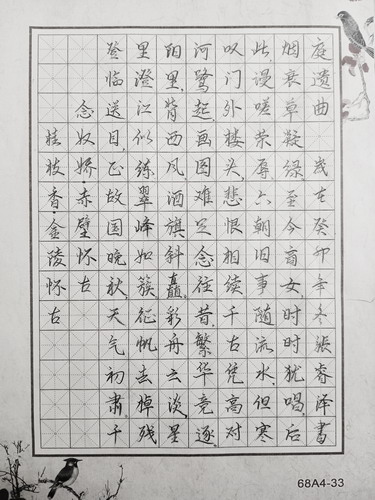 桂枝香·金陵怀古
念奴娇·赤壁怀古
登临送目,正故国晚秋,天气初肃,千
里澄江似练,翠峰如簇,征帆去棹残
阳里,背西风,酒旗斜矗,彩舟云淡,星
河鹭起,画图难足,念往昔,繁华竞逐,
叹门外楼头,悲恨相续,千古凭高对
此,谩嗟荣辱,六朝旧事随流水,但寒
烟衰草凝绿,至今商女,时时犹唱,后
庭遗曲 岁在癸卯年冬張睿泽書
68A4-33